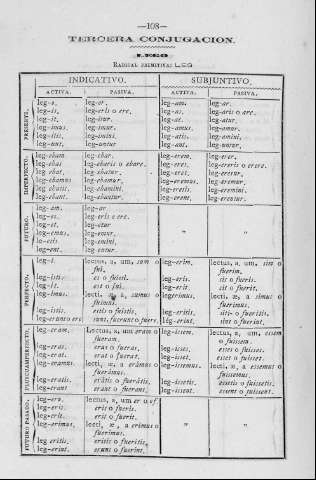 —108—
TERCERA CONJUGACION.
LEGO
RADICAL PRIMITIVA: LEG
INDICATIVO. SUBJUNTIVO.
ACTIVA. PASIVA. ACTIVA. PASIVA.
PRESENTE.
leg-o. leg-or. leg-am. leg-ar.
leg-is. leg-eris o ere. leg-as. leg-aris o are.
leg-it. leg-itur. leg-at. leg-atur.
leg-imus. leg-imur. leg-amus. leg-amur.
leg-itis. leg-imini. leg-atis. leg-amini.
leg-unt. leg-untur leg-ant. leg-antur.
IMPERFECTO.
leg-ebam. leg-ebar. leg-erem. leg-erer.
leg-ebas. leg-ebaris o ebare. leg-eres. leg-ereris o erere.
leg-ebat. leg-ebatur. leg-eret. leg-eretur.
leg-ebamus. leg-ebamur. leg-eremus. leg-eremur.
leg-ebatis. leg-ebamini. leg-eretis. leg-eremini.
leg-ebant. leg-ebantur. leg-erent. leg-erentur.
FUTURO.
leg-am. leg-ar
leg-es. leg-eris o ere.
leg-et. leg-etur
leg-emus. leg-emur. " "
leg-etis. leg-emini.
leg-ent. leg-entur.
PERFECTO.
leg-i. lectus, a, um, sum o leg-erim. lectus, a, um, sim o
fui. fuerim.
leg-isti. es o fuisti. leg-eris. sis o fueris.
leg-it. est o fui. leg-erit. sit o fuerit.
leg-imus. lecti, æ, a, sumus o legerimus. lecti, æ, a simus o
fuimus. fuerimus.
leg-istis. estis o fuistis. leg-eritis. sitis o fueritis.
leg-erunt o ere. sunt, fuerunt o fuere. leg-erint. sint o fuerint.
PLUSCUAMPERFECTO.
leg-eram. Lectus, a, um eram o leg-issem. lectus, a, um, essem
fueram. o fuissem.
leg-eras. eras o fueras. leg-isses. esses o fuisses.
leg-erat. erat o fuerat. leg-isset. esset o fuisset.
leg-eramus. lecti, æ, a erámus o leg-issemus. lecti, æ, a essemus o
fuerámus. fuissemus.
leg-eratis. erátis o fuerátis. leg-issetis. essetis o fuissetis.
leg-erant. erant o fuerant. leg-issent. essent o fuissent.
FUTURO PASADO.
leg-ero. lectus, a, um er o, of.
leg-eris. eris o fueris.
leg-erit. erit o fuerit.
leg-erimus. lecti, æ, a erimus o " "
fuerimus.
leg eritis. eritis o fueritis.
leg-erint. erunt o fuerint.